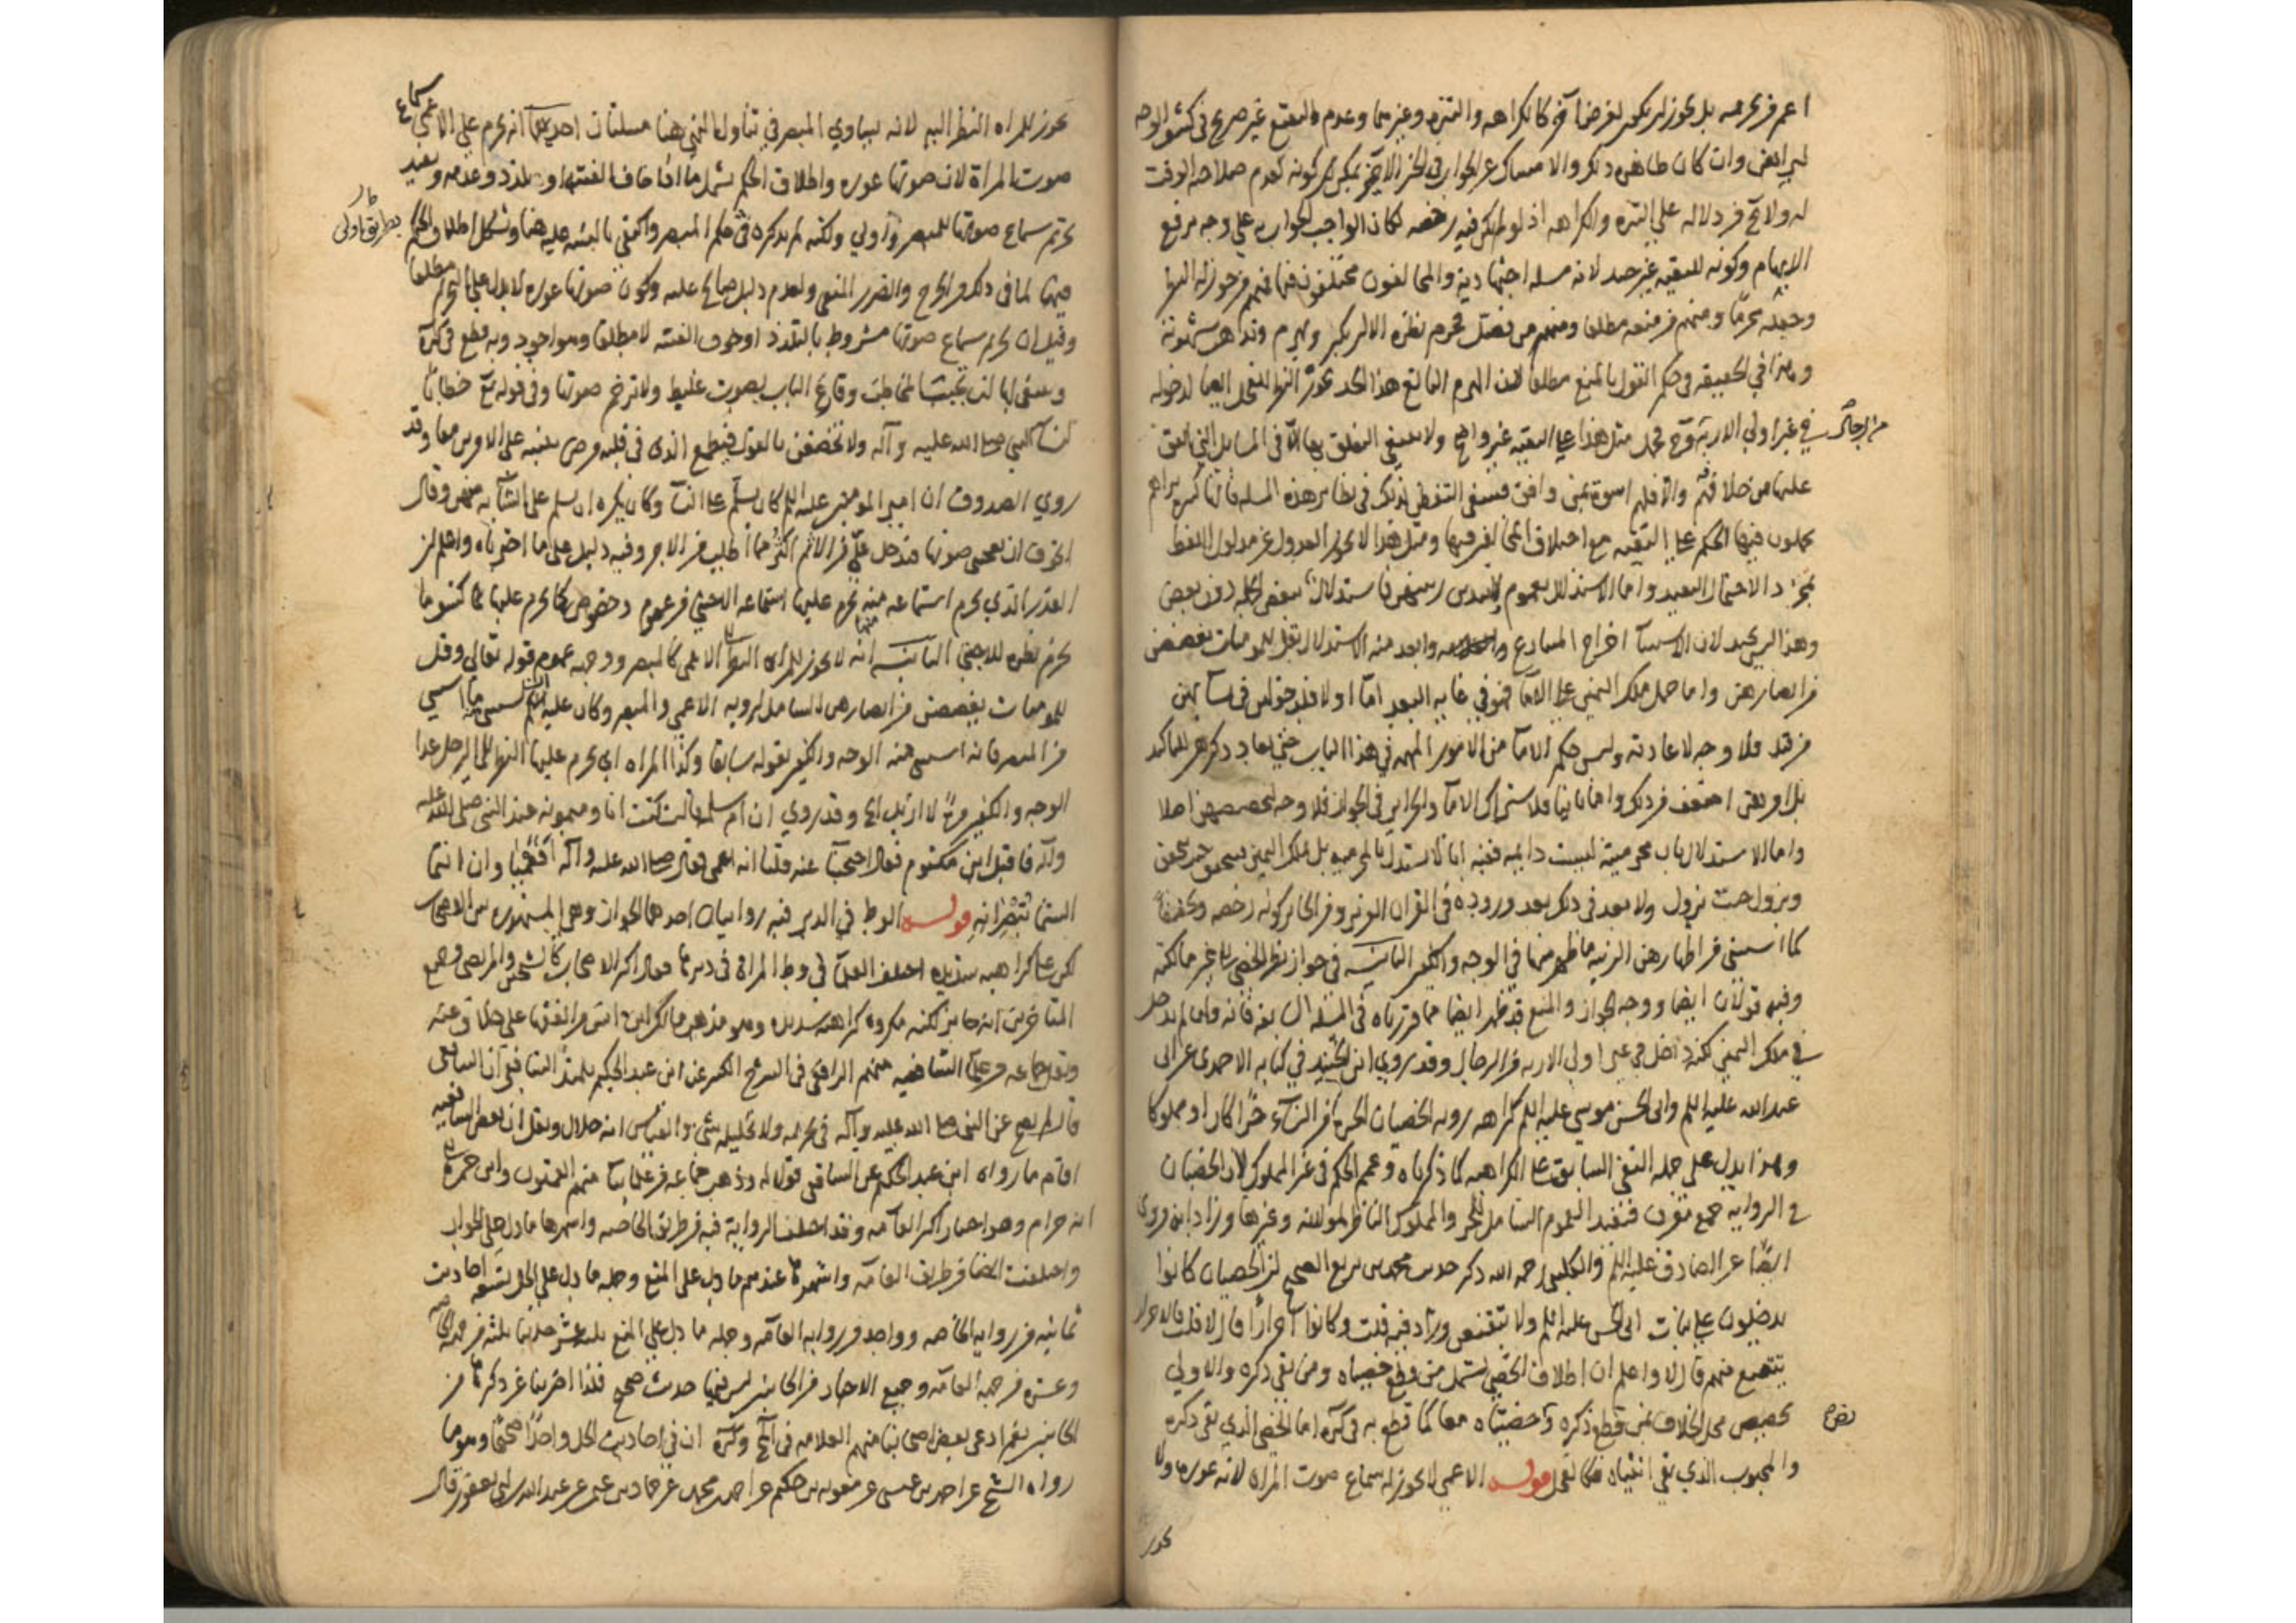 اعم من تحريمه بل يجوز ان يكون لغرض آخر كالكراهة والتنزه وغيرهما وعدم التقنع غير صريح في كشف الوجه
وان كان ظاهر ذلك والامساك عن الجواب في الخبر الآخر يمكن كونه لعدم صلاحية الوقت
له ولا آخر دلالة على التنزه والكراهة اذ لو لم يكن فيه رخصة لكان الواجب الجواب على وجه يرفع
الابهام وكونه للتقية غير جيد لانه مسئلة اجتهادية والمخالفون مختلفون فيها فمنهم من جوز له النظر
وجعله محرما ومنهم من منعه مطلقا ومنهم من فصل فحرم نظره الا ان يكبر ويهرم وتذهب شهوته
وهذا في الحقيقة في حكم القول بالمنع مطلقا لان الهرم البالغ هذا الحد يجوز النظر للفحل ايضا لدخوله
في غير اولي الاربة وح فحمل مثل هذا على التقية غير واضح ولا ينبغي التعلق بها الا في المسائل التي اتفق
من الرجال
عليها من خلافهم والا فلهم اسوة بمن وافق فينبغي التفطن لذلك في نظائر هذه المسئلة فانها كثيرة تراهم
يحملون فيها الحكم على التقية مع اختلاف المخالفين فيها ومثل هذا لا يجوز العدول عن مدلول اللفظ
بمجرد الاحتمال البعيد واما الاستدلال بعموم ولا يبدين زينتهن فاستدلال ببعض الآية دون بعض
وهذا ليس بجيد لان الاستثناء اخراج وابعد منه الاستدلال بقل للمؤمنات يغضضن
من ابصارهن واما حمل ملك اليمين على الاماء فهو في غاية البعد اما اولا فلدخولهن في نسائهن
من قبل فلا وجه لاعادته وليس حكم الاماء من الامور المهمة في هذا الباب حتى يعاد ذكرهن للتاكيد
بل امرهن اخف من ذلك واما ثانيا فلاشتراك الاماء والحرائر في الجواز فلا وجه لتخصيصهن اصلا
واما الاستدلال بان محرميته ليست دائمية ففيه انا لا نستدل بالمحرمية بل بملك اليمين
ويزول حيث يزول ولا بعد في ذلك بعد وروده في القرآن العزيز ومن الجائز كونه رخصة وتخفيفا
كما استثنى من اظهارهن الزينة ما ظهر منها في الوجه والكفين الثانية في جواز نظر الخصي الى غير مالكته
وفيه قولان ايضا ووجه الجواز والمنع قد ظهر ايضا مما قررناه في المسئلة السابقة فانه وان لم يدخل
في ملك اليمين لكنه داخل في غير اولي الاربة من الرجال وقد روى ابن الجنيد في كتابه الاحمدي عن ابي
عبد الله عليه السلم وابي الحسن موسى عليه السلم كراهة رؤية الخصيان الحرة من النساء حرا كان او مملوكا
وهذا يدل على حمله النفي السابق على الكراهة كما ذكرناه وعمم الحكم في غير المملوك لان الخصيان
في الرواية جمع معرف فتفيد العموم الشامل للحر والمملوك الناظر لمولاته وغيرها وزاد انه مروي
ايضا عن الصادق عليه السلم والكليني رحمه الله ذكر حديث محمد بن بزيع الصحيح ان الخصيان كانوا
يدخلون على بنات ابي الحسن عليه السلم ولا يتقنعن وزاد فيه قلت وكانوا احرارا قال لا قلت فالاحرار
يتقنع منهم قال لا واعلم ان اطلاق الخصي يشمل من قطع خصيتاه ومن بقي ذكره والاولى
تخصيص محل الخلاف بمن قطع ذكره وخصيتاه معا كما قطع به في كره اما الخصي الذي بقي ذكره
والمجبوب الذي بقي انثياه فكالفحل قوله الاعمى لا يجوز له سماع صوت المراة لانه عورة ولا
يجوز
يجوز للمراه النظر اليه لانه يساوي المبصر في تناول النهي هنا مسئلتان احديهما انه يحرم على الاعمى سماع
صوت المراة لان صوتها عورة واطلاق الحكم يشمل ما اذا خاف الفتنة او تلذذ وعدمه ويفيد
تحريم سماع صوتها للمبصر اولى ولكنه لم يذكره في حكم المبصر واكتفى بالتنبيه عليه هنا ويشكل اطلاق الحكم
بطريق اولى
فيهما لما في ذلك من الحرج والضرر المنفي ولعدم دليل صالح عليه وكون صوتها عورة لا يدل على التحريم مطلقا
وقيل ان تحريم سماع صوتها مشروط بالتلذذ او خوف الفتنة لا مطلقا وهو اجود وبه قطع في كره
وينبغي لها ان تجيب المخاطب وقارع الباب بصوت غليظ ولا ترخم صوتها وفي قوله تع خطابا
لنساء النبي صلى الله عليه وآله ولا تخضعن بالقول فيطمع الذي في قلبه مرض تنبيه على الامرين معا وقد
روى الصدوق ان امير المؤمنين عليه السلم كان يسلم على النساء وكان يكره ان يسلم على الشابة منهن وقال
اتخوف ان يعجبني صوتها فيدخل علي من الاثم اكثر مما اطلب من الاجر وفيه دليل على ما اخترناه واعلم ان
القدر الذي يحرم استماعه منه يحرم عليها استماعه الاجنبي من عموم وخصوص كما يحرم عليها كشف ما
يحرم نظره للاجنبي الثانية انه لا يجوز للمراه النظر الى الاعمى كالمبصر ووجهه عموم قوله تعالى وقل
للمؤمنات يغضضن من ابصارهن الشامل لرؤية الاعمى والمبصر وكان عليه ان يستثني ما استثني
من المبصر فانه استثنى منه الوجه والكفين بقوله سابقا وكذا المراه اي يحرم عليها النظر الى الرجل عدا
الوجه والكفين مرة لا ازيد الخ وقد روي ان ام سلمة قالت كنت انا وميمونة عند النبي صلى الله عليه
وآله فاقبل ابن مكتوم فقال احتجبا عنه فقلنا انه اعمى فقال صلى الله عليه وآله افعمياوان انتما
الستما تبصرانه قوله الوطء في الدبر فيه روايتان احدهما الجواز وهي المشهورة بين الاصحاب
لكن على كراهية شديدة اختلف العلماء في وطء المراة في دبرها فقال اكثر الاصحاب كالشيخين والمرتضى وجميع
المتاخرين انه جائز لكنه مكروه كراهة شديدة وهو مذهب مالك
ونقل جماعة من علماء الشافعية منهم الرافعي في الشرح الكبير عن ابن عبد الحكيم تلميذ الشافعي ان الشافعي
قال لم يصح عن النبي صلى الله عليه وآله في تحريمه ولا تحليله شيء والقياس انه حلال ونقل ان بعض الشافعية
اقام ما رواه ابن عبد الحكم عن الشافعي قولا له وذهب جماعة من علمائنا منهم القميون وابن حمزة الى
انه حرام وهو اختيار اكثر العامة وقد اختلف الرواية فيه من طريق الخاصة واشهرها ما دل على الجواز
واختلفت ايضا من طريق العامة واشهرها عندهم ما دل على المنع وجملة ما دل على الحل تسعة احاديث
ثمانية من رواية الخاصة وواحد من رواية العامة وجملة ما دل على المنع ثلثة عشر حديثا ثلثة من جهة الخاصة
وعشرة من جهة العامة وجميع الاخبار من الجانبين ليس فيها حديث صحيح فلذا اضربنا عن ذكرها من
الجانبين نعم ادعى بعض اصحابنا منهم العلامة في لف وكره ان في احاديث الحل واحدا صحيحا وهو ما
رواه الشيخ عن احمد بن عيسى عن معوية بن حكيم عن احمد بن محمد عن حماد بن عثمان عن عبد الله بن ابي يعفور قال